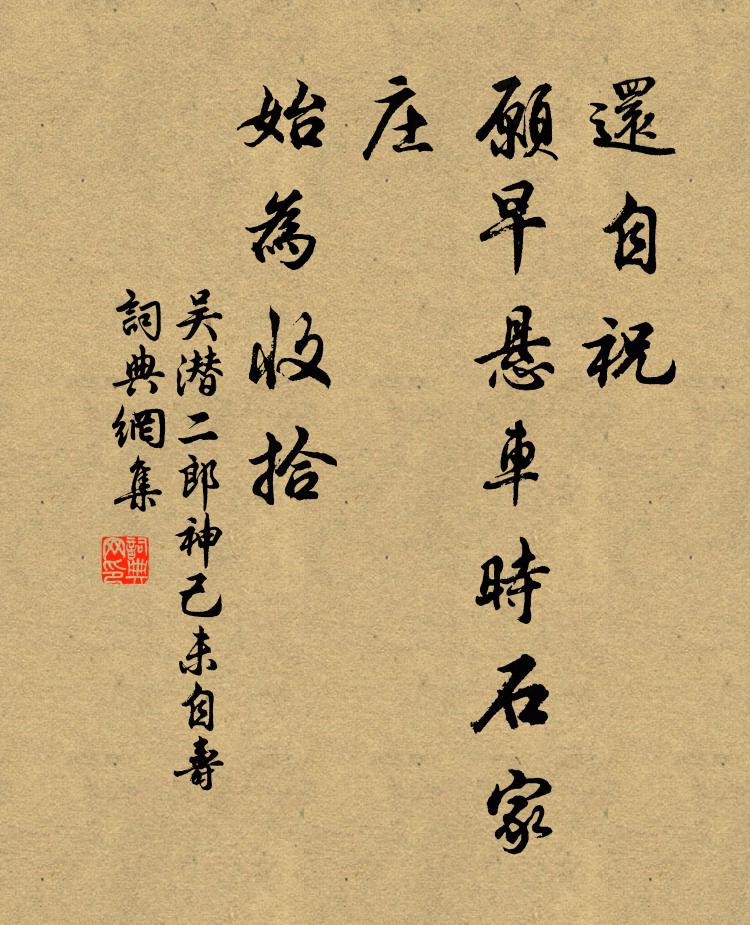 還自祝
願早悬車時石家
庄
始為收拾
吴潜二郎神己未自壽
詞典網集
詞典
网印